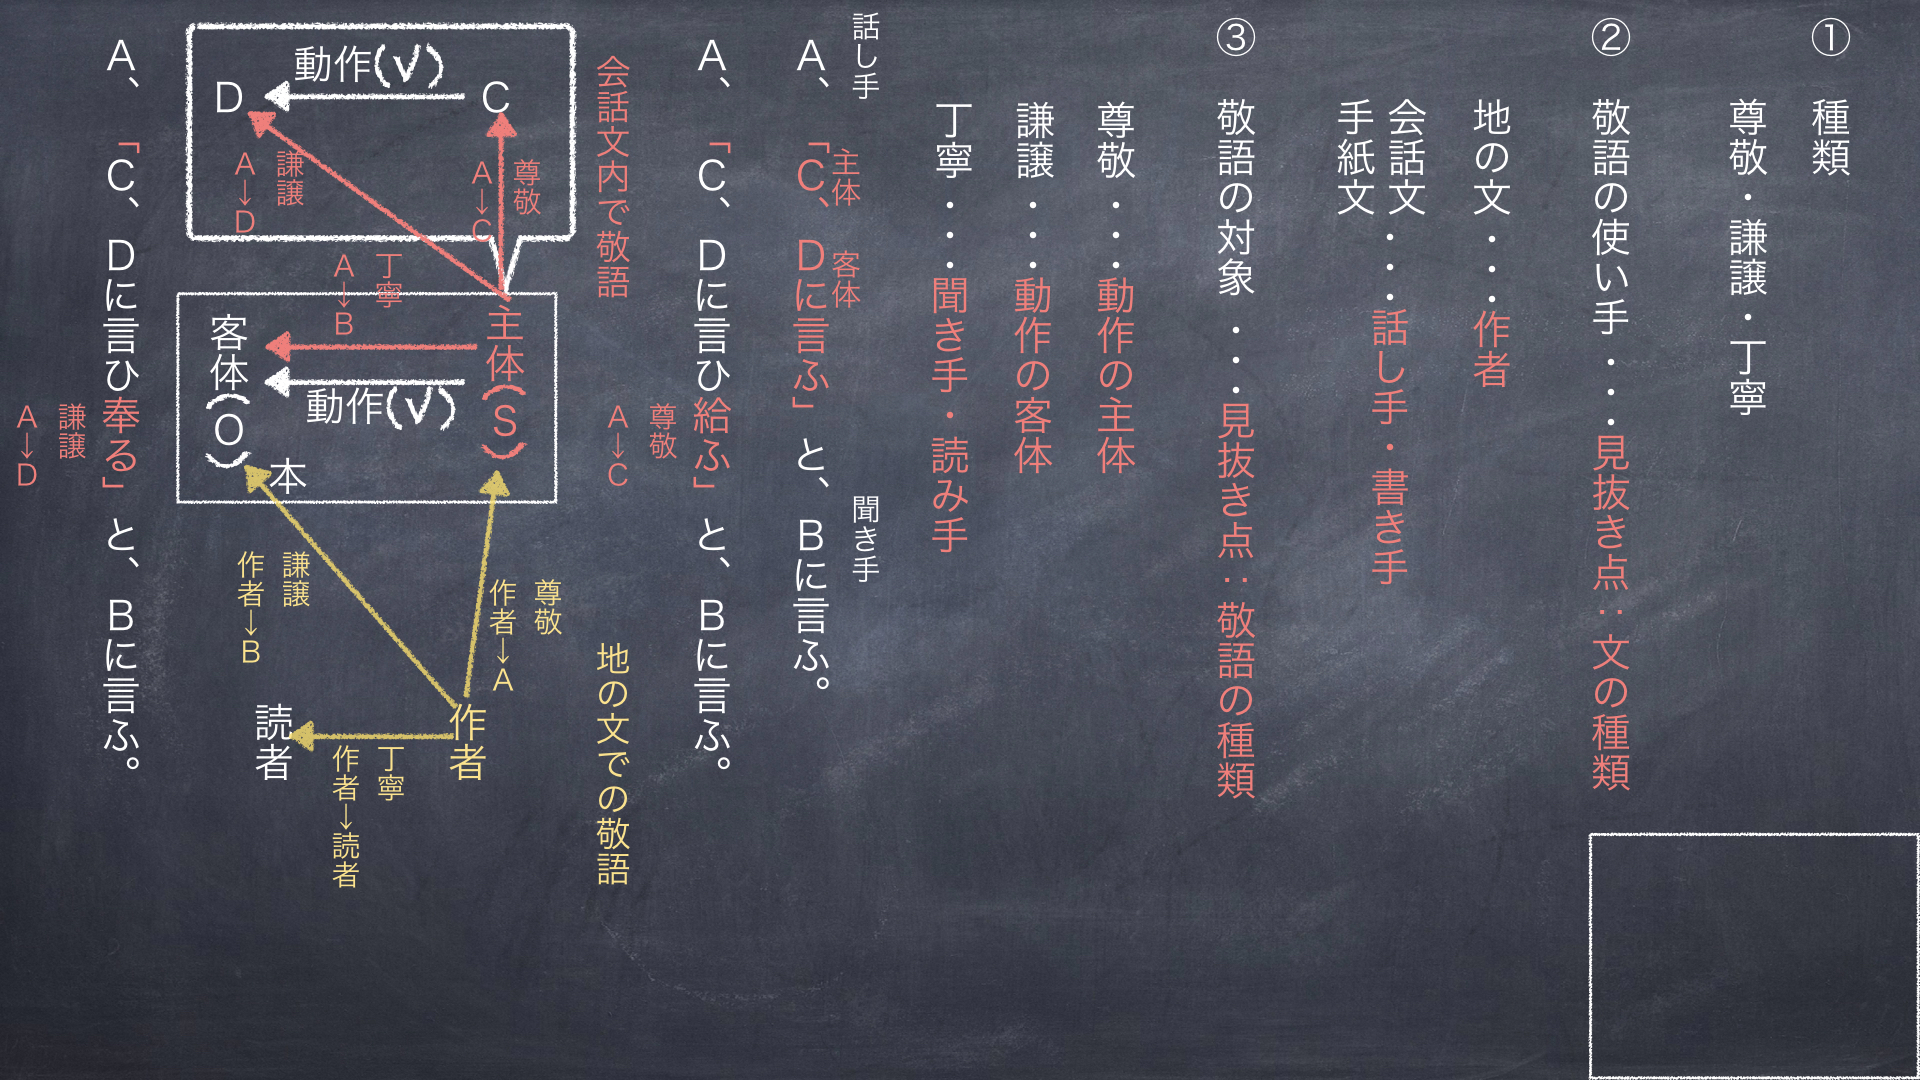 ①
種類
尊敬・謙譲・丁寧
②
敬語の使い手・・・見抜き点：文の種類
地の文・・・作者
会話文
手紙文
・・・話し手・書き手
③
敬語の対象・・・見抜き点：敬語の種類
尊敬・・・動作の主体
謙譲・・・動作の客体
丁寧・・・聞き手・読み手
話し手
主体
客体
聞き手
A、「C、Dに言ふ」と、Bに言ふ。
A、「C、Dに言ひ給ふ」と、Bに言ふ。
尊敬
A→C
会話文内で敬語
地の文での敬語
C
動作(V)
D
尊敬
A→C
謙譲
A→D
丁寧
A→B
主体(S)
動作(V)
客体(O)
本
尊敬
作者→A
謙譲
作者→B
作者
丁寧
作者→読者
読者
A、「C、Dに言ひ奉る」と、Bに言ふ。
謙譲
A→D